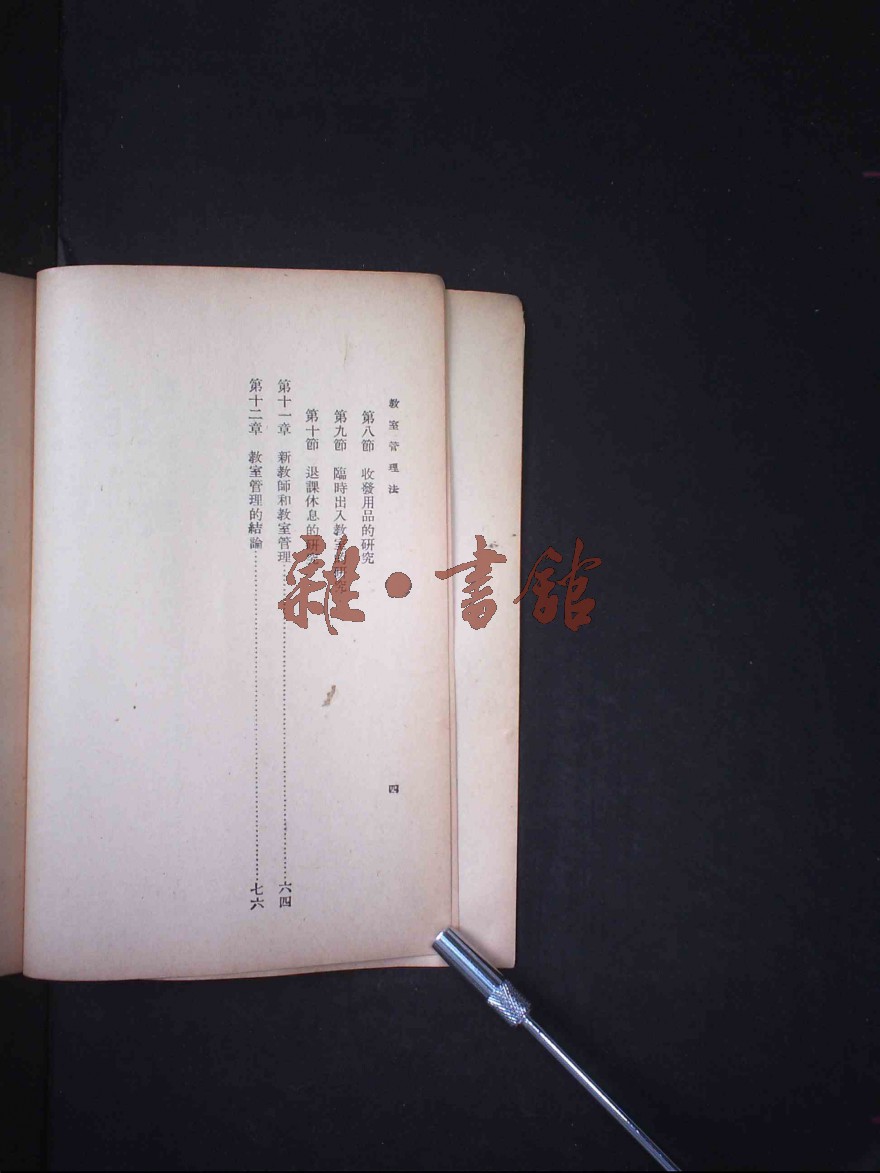 教室管理法
四
第八節　收發用品的研究
第九節　臨時出入教室的研究
第十節　退課休息的研究
第十一章　新教師和教室管理……六四
第十二章　教室管理的結論……七六
雜·書館